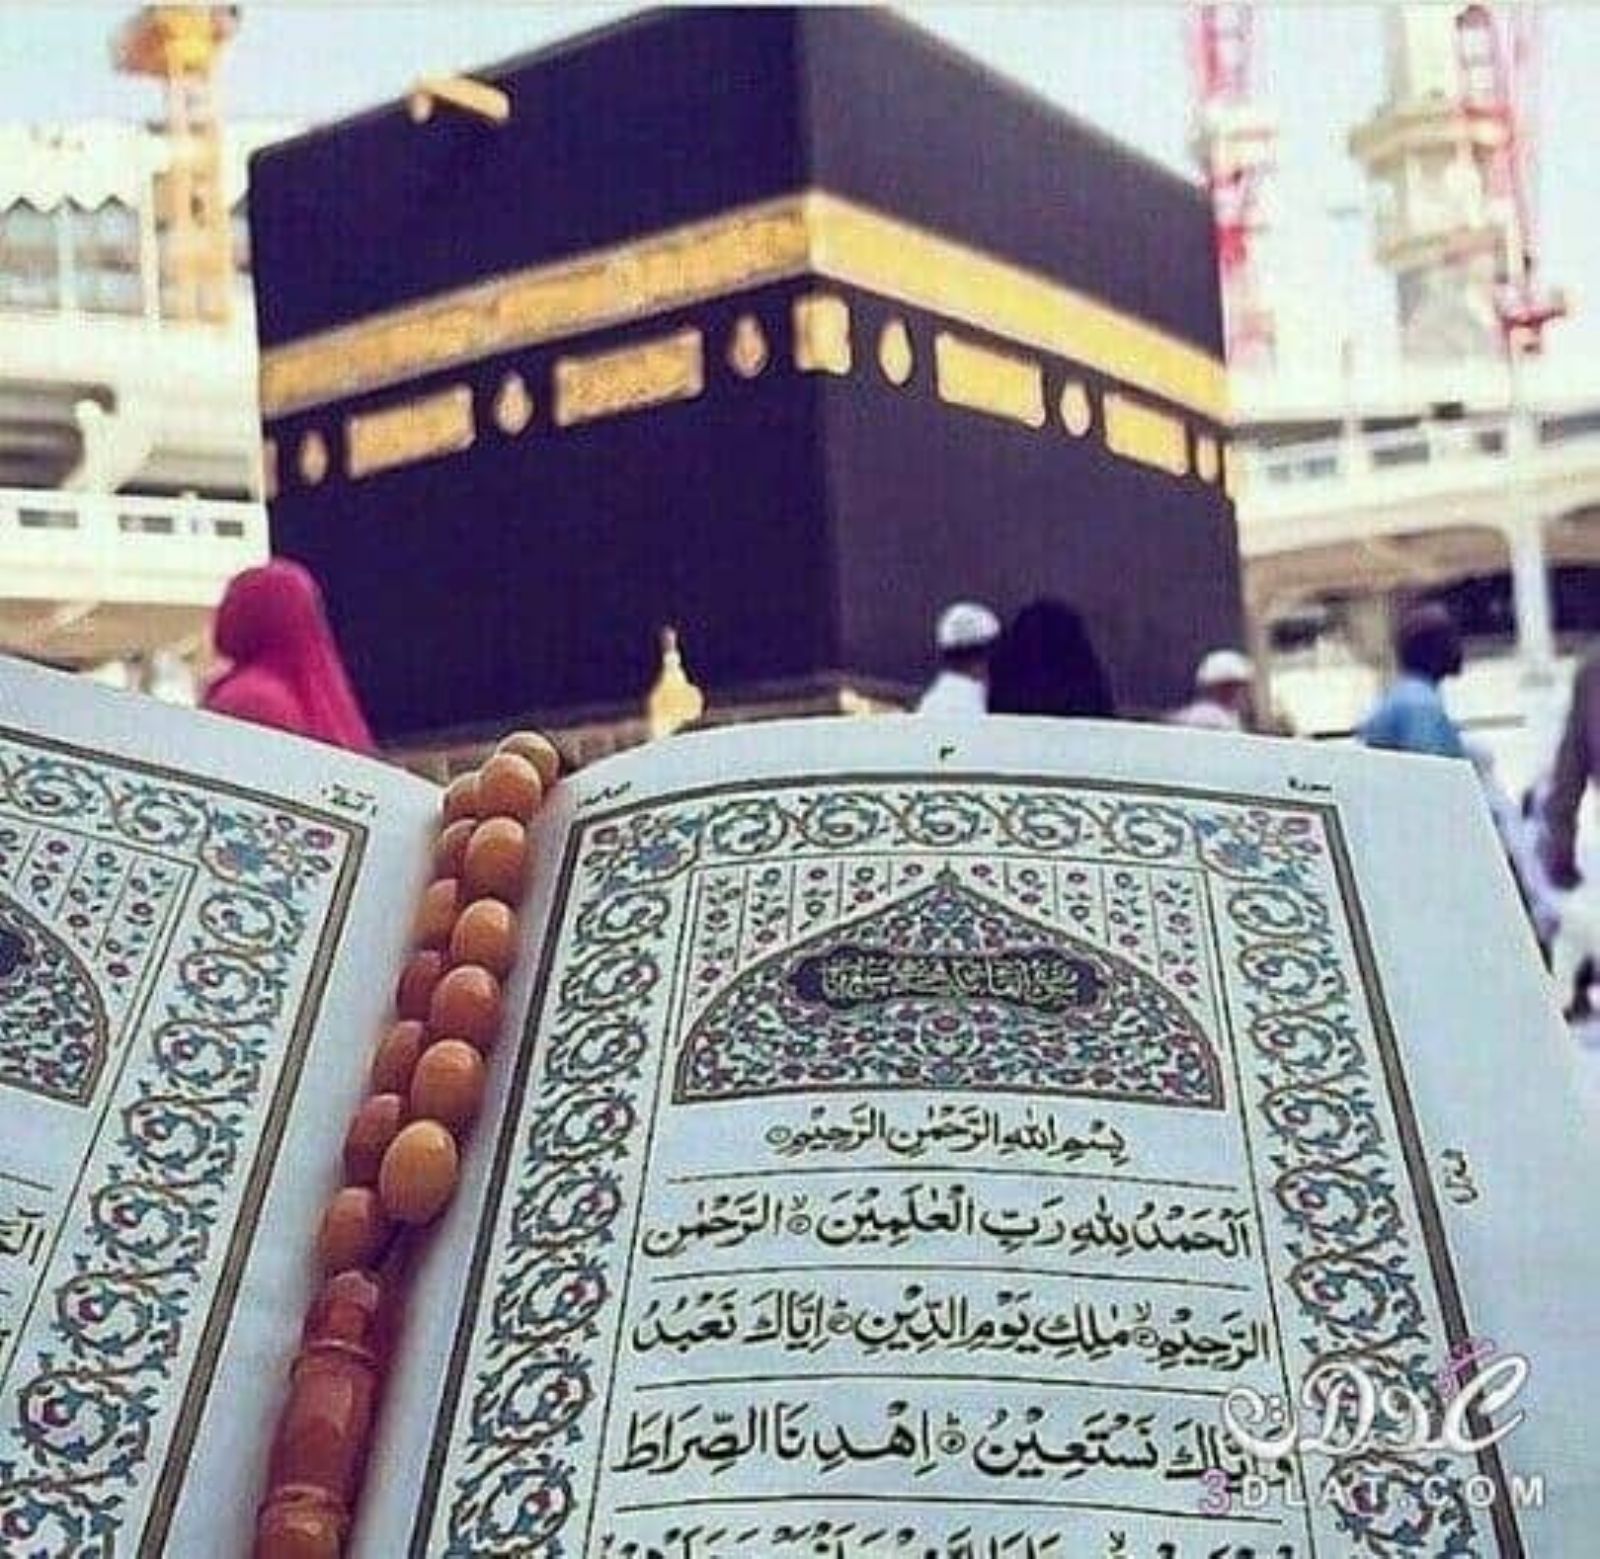 ٣
سورة
بِسْمِ اللهِ الرَّحْمٰنِ الرَّحِيْمِ
اَلْحَمْدُ لِلّٰهِ رَبِّ الْعٰلَمِيْنَ ۙ الرَّحْمٰنِ
الرَّحِيْمِ ۙ مٰلِكِ يَوْمِ الدِّيْنِ ؕ اِيَّاكَ نَعْبُدُ
وَاِيَّاكَ نَسْتَعِيْنُ ؕ اِهْدِنَا الصِّرَاطَ
3DLAT.COM